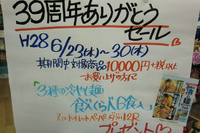 39周年ありがとう
セール
H28 6/23(木)〜30(木)
其期間中対象商品10000円+税以上
お買い上げの方に
3種の冷やし麺
食べくらべ6食入
プレゼント